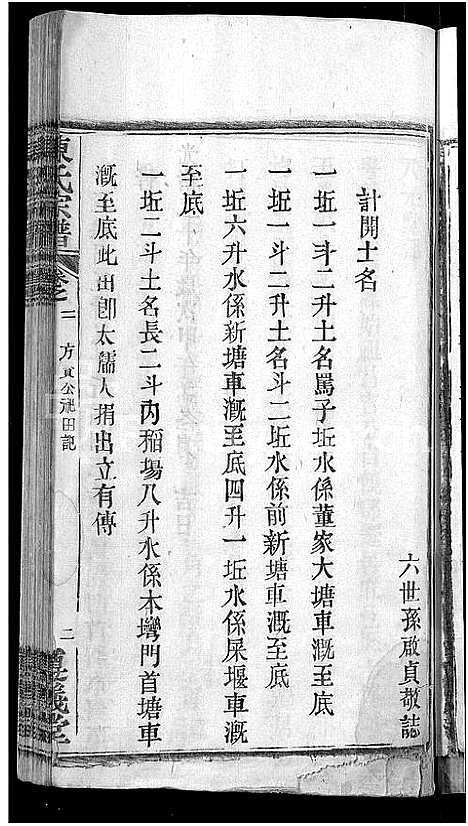 六世孫啟貞敬誌
計開土名
一坵一斗二升土名罵子坵水係董家大塘車溉至底
一坵一斗二升土名斗二坵水係前新塘車溉至底
一坵六升水係新塘車溉至底四升一坵水係屎堰車溉
至底
一坵二斗土名長二斗內稲場八升水係本塆門首塘車
溉至底此田卽太孺人捐出立有傳
陳氏宗譜
卷之二
方貢公祀田記
二
義堂